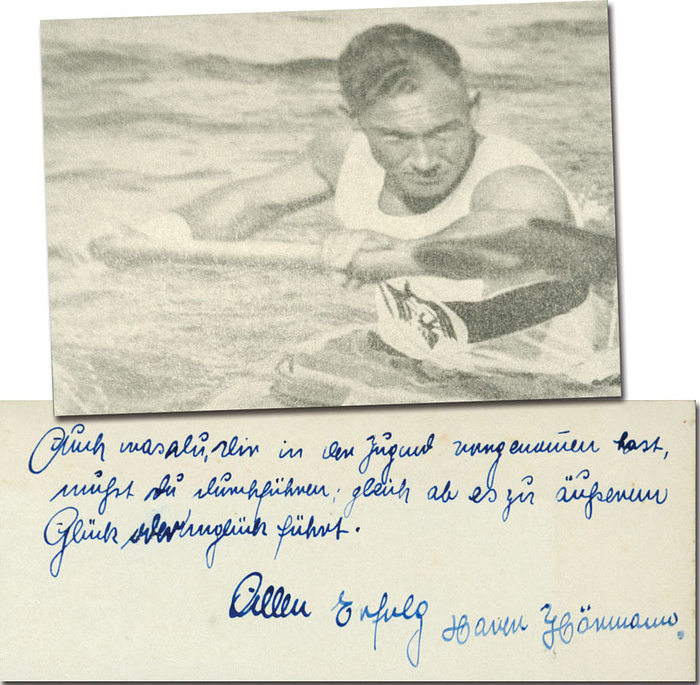 Auch was du, dir in der Jugend vorgenommen hast,
mußt du durchführen, gleich ob es zu äußerem
Glück oder Unglück führt.
Allen Erfolg Xaver Hörmann.